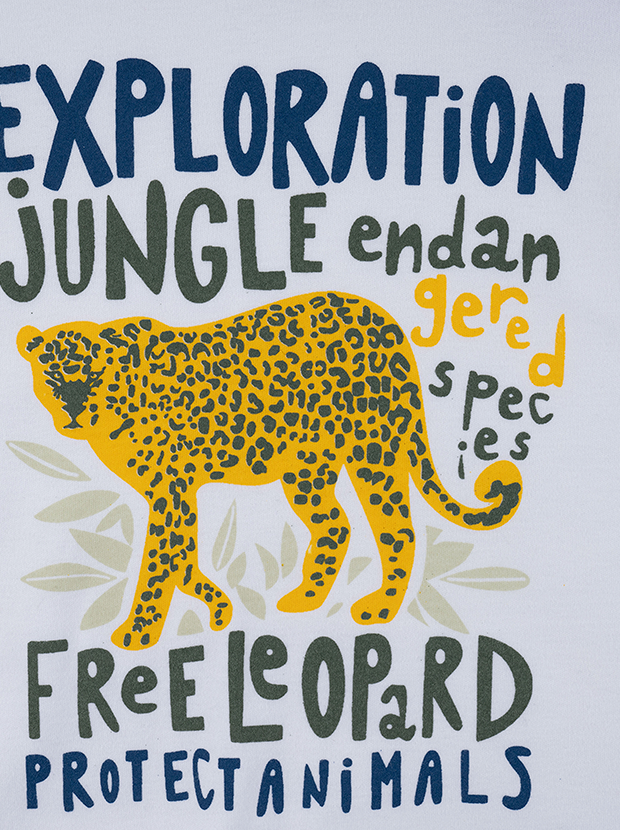 EXPLORATION
jUNGLE endan
gered
spec
ies
FReE LeOPaRD
PROTECT ANiMALS